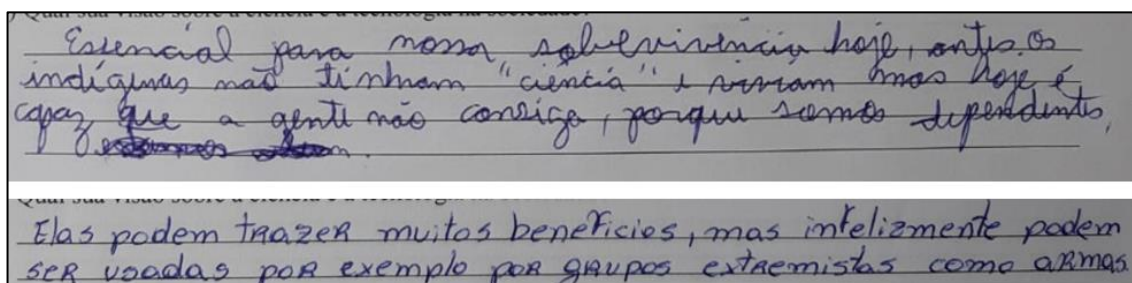 Qual sua visão sobre a ciência e a tecnologia na sociedade?
Essencial para nossa sobrevivência hoje, antes os
indígenas não tinham "ciência" e viviam mas hoje é
capaz que a gente não consiga, porque somos dependentes,
Qual sua visão sobre a ciência e a tecnologia na
Elas podem trazer muitos beneficios, mas infelizmente podem
ser usadas por exemplo por grupos extremistas como armas